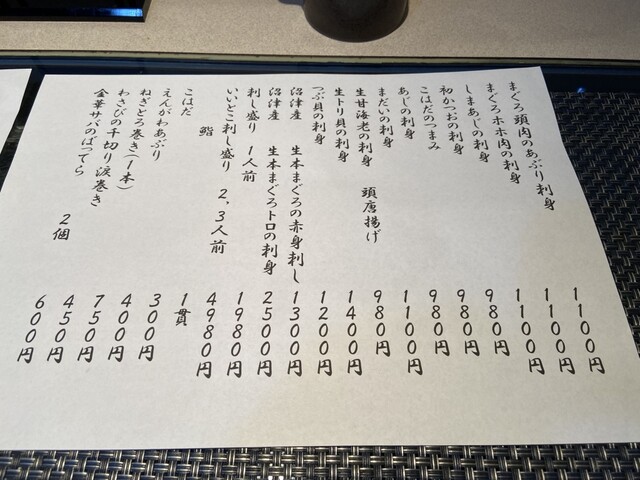 まぐろ頭肉のあぶり刺身 1100円
まぐろホホ肉の刺身 1100円
しまあじの刺身 1100円
初かつおの刺身 980円
こはだのつまみ 980円
あじの刺身 980円
まだいの刺身 1100円
生甘海老の刺身 頭唐揚げ 980円
生トリ貝の刺身 1400円
つぶ貝の刺身 1200円
沼津産 生本まぐろの赤身刺し 1300円
沼津産 生本まぐろトロの刺身 2500円
刺し盛り 1人前 1980円
いいとこ刺し盛り 2,3人前 4980円
鮨 1貫
こはだ 300円
えんがわあぶり 400円
ねぎとろ巻き(1本) 750円
わさびの千切り涙巻き 450円
金華サバのばってら 2個 600円